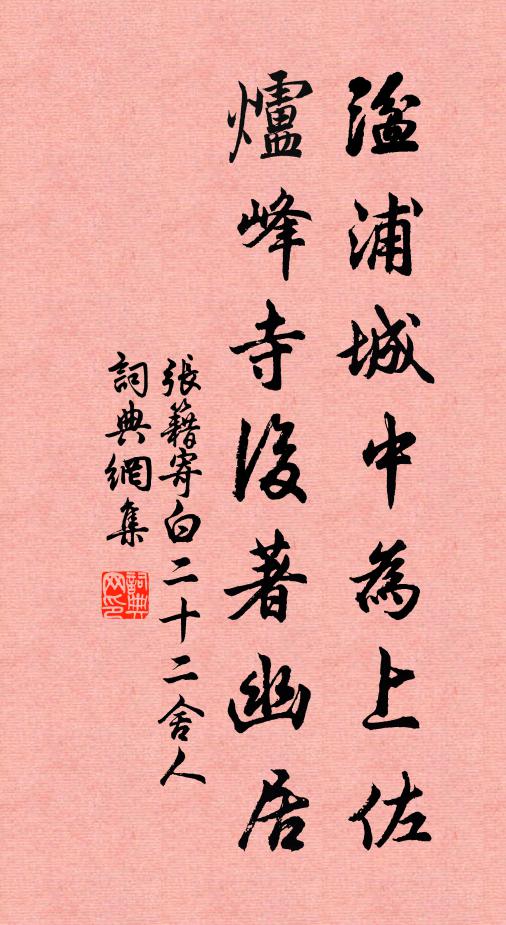 湓浦城中為上佐
爐峰寺後著幽居
張籍寄白二十二舍人
詞典網集
詞典网印